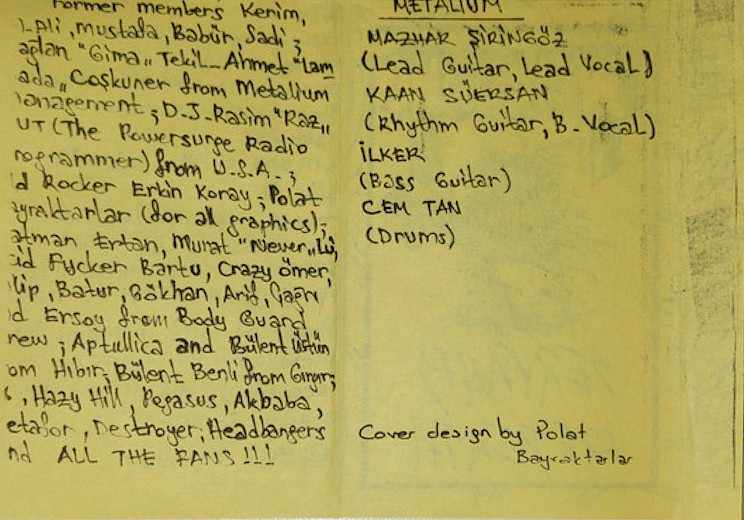 Former members Kerim,
Ali, Mustafa, Babür, Sadi;
"Gima" Tekil_Ahmet "Lam
ada" Coşkuner from Metalium
anagement; D-J-Rasim "Raz"
UT (The Powersurge Radio
rogrammer) from U.S.A.;
d Rocker Erkin Koray; Polat
ayraktarlar (for all graphics);
atman Ertan, Murat "Never"
id Fycker Bartu, Crazy Ömer,
lip, Batur, Gökhan, Arif, Çağrı
d Ersoy from Body Guard
rew; Aptullica and Bülent Üstün
om Hıbır; Bülent Benli from Gırgır;
, Hazy Hill, Pegasus, Akbaba,
etafor, Destroyer; Headbangers
nd ALL THE FANS!!!
METALIUM
MAZHAR ŞİRİNGÖZ
(Lead Guitar, Lead Vocal)
KAAN SÜERSAN
(Rhythm Guitar, B_Vocal)
İLKER
(Bass Guitar)
CEM TAN
(Drums)
Cover design by Polat
Bayraktarlar